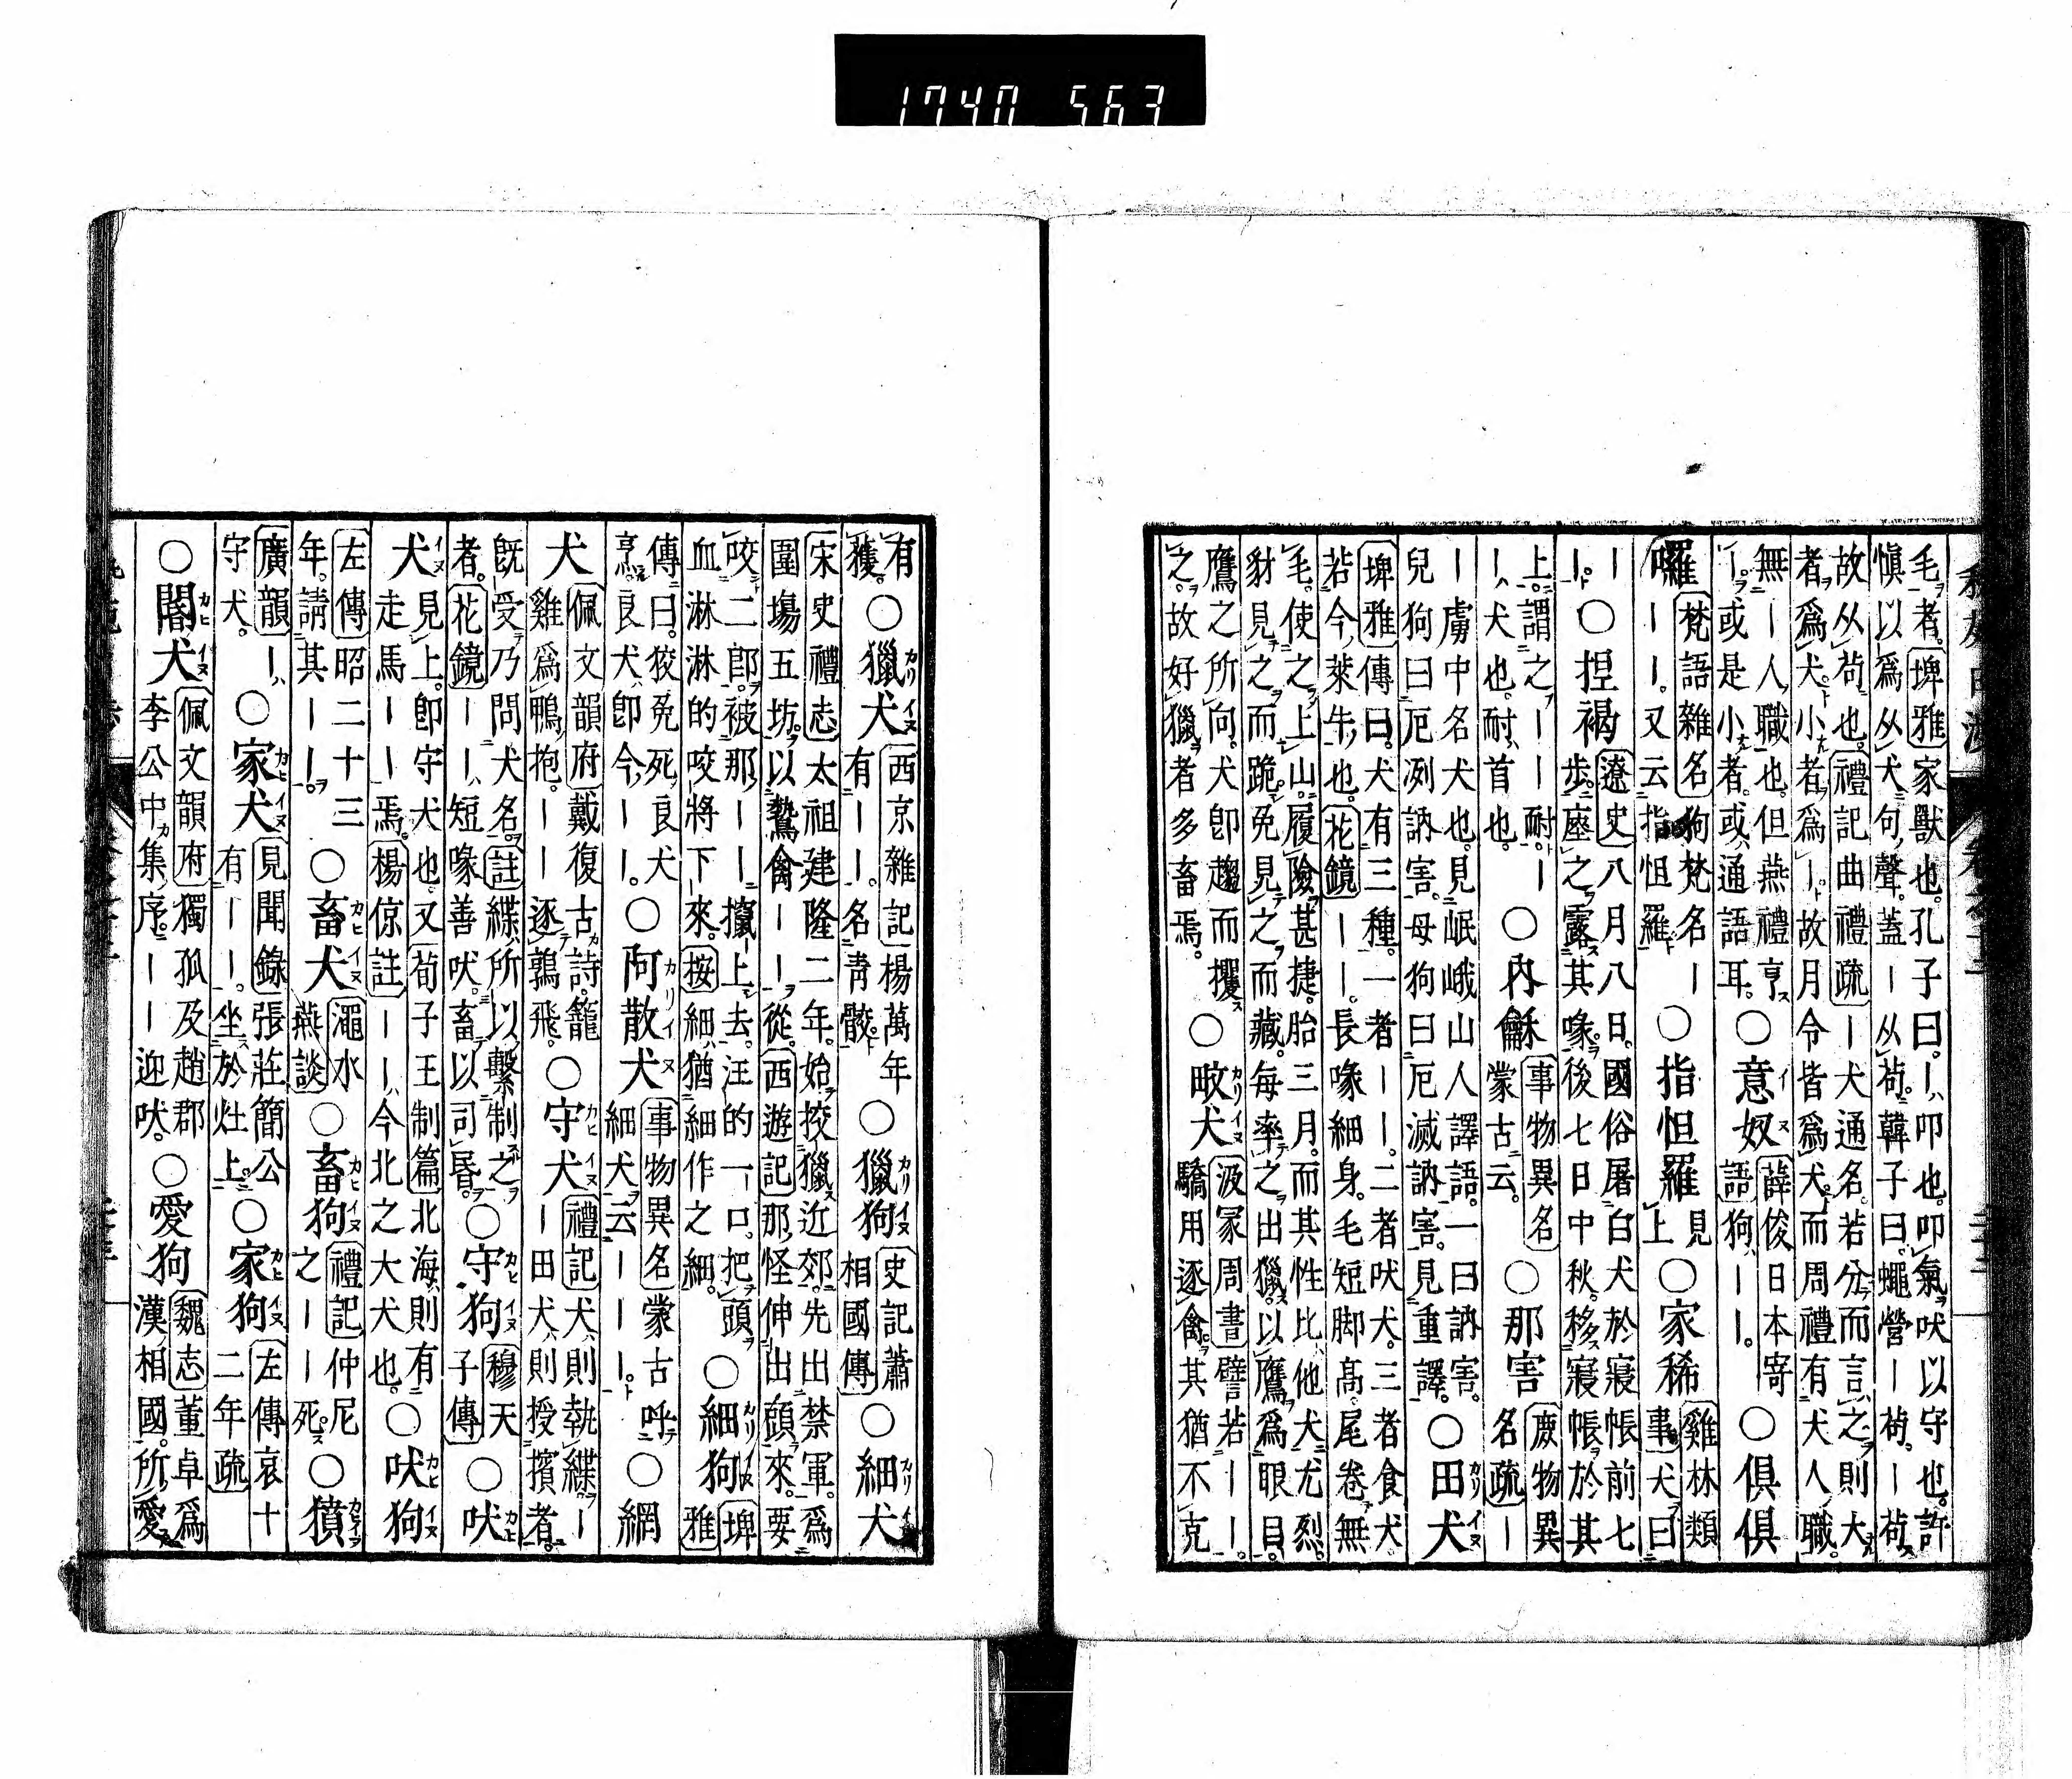 毛者。埤雅家獸也。孔子曰。ー叩也。叩氣吠以守也。許
慎以爲从犬句聲。蓋ー从茍。韓子曰。蠅營ー茍。ー茍
故从茍也。禮記曲禮疏ー犬通名。若分而言之則大
者爲犬小者爲ー。故月令皆爲犬而周禮有犬人職。
無ー人職也。但燕禮亨
ー。或是小者。或通語耳。○意奴 薛俊日本寄
語狗ーー。○俱俱
囉 梵語雜名狗梵名ー
ーー。又云指怛羅 ○指怛羅 見
上 ○家稀 雞林類
事犬曰
ー
ー。○捏褐 遼史八月八日。國俗屠白犬於寢帳前七
步座之露其喙。後七日中秋。移寢帳於其
上。謂之ーー耐ー
ー犬也。耐首也。○內龢 事物異名
蒙古云。○那害 庶物異
名疏ー
ー虜中名犬也。見岷峨山人譯語。一曰訥害。
兒狗曰厄冽訥害。母狗曰厄滅訥害。見重譯。○田犬
埤雅傳曰。犬有三種。一者ーー。二者吠犬。三者食犬。
若今萊牛也。花鏡ーー。長喙細身。毛短脚高。尾卷無
毛。使之上山。履險甚捷。胎三月。而其性比他犬尤烈。
豺見之而跪。兔見之而藏。每率之出獵。以鷹爲眼目。
鷹之所向。犬卽趨而攫
之。故好獵者多畜焉。○畋犬 汲冢周書譬若ーー。
驕用逐禽。其猶不克
有
獲。○獵犬 西京雜記楊萬年
有ーー。名靑骹 ○獵狗 史記蕭
相國傳 ○細犬
宋史禮志太祖建隆二年。始挍獵近郊。先出禁軍。爲
圍場五坊。以鷙禽ーー從。西遊記那怪伸出頭來。要
咬二郎。被那ーー攛上去。汪的一口。把頭
血淋淋的咬將下來。按細猶細作之細。○細狗 埤
雅
傳曰。狡兔死良犬
烹。良犬卽今ーー。○阿散犬 事物異名蒙古呼
細犬云ーー。○網
犬 佩文韻府戴復古詩。籠
雞爲鴨抱。ーー逐鶉飛。○守犬 禮記犬則執緤。ー
ー田犬則授擯者。
旣受乃問犬名。註緤所以繫制之
者。花鏡ーー短喙善吠。畜以司昏。○守狗 穆天
子傳 ○吠
犬 見上。卽守犬也。又荀子王制篇北海則有
走馬ーー焉。楊倞註ーー今北之大犬也。○吠狗
左傳昭二十三
年。請其ーー。○畜犬 澠水
燕談 ○畜狗 禮記仲尼
之ーー死 ○獖
廣韻ー
守犬。○家犬 見聞錄張莊簡公
有ーー。坐於灶上。○家狗 左傳哀十
二年疏
○闍犬 佩文韻府獨孤及趙郡
李公中集序。ーー迎吠。○愛狗 魏志董卓爲
漢相國。所愛
1740 563